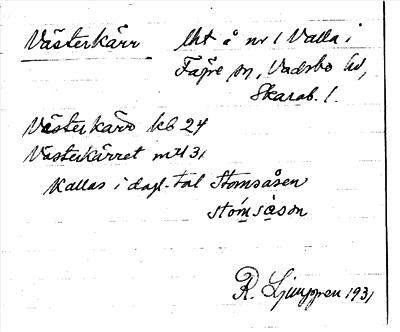 Västerkärr lht å nr 1 Valla i
Fägre sn, Vadsbo hd,
Skarab. l.
Västerkärr kb 24
Västerkärret mtl 31
Kallas i dagl. tal Stomsåsen
stómsåson
R. Ljunggren 1931